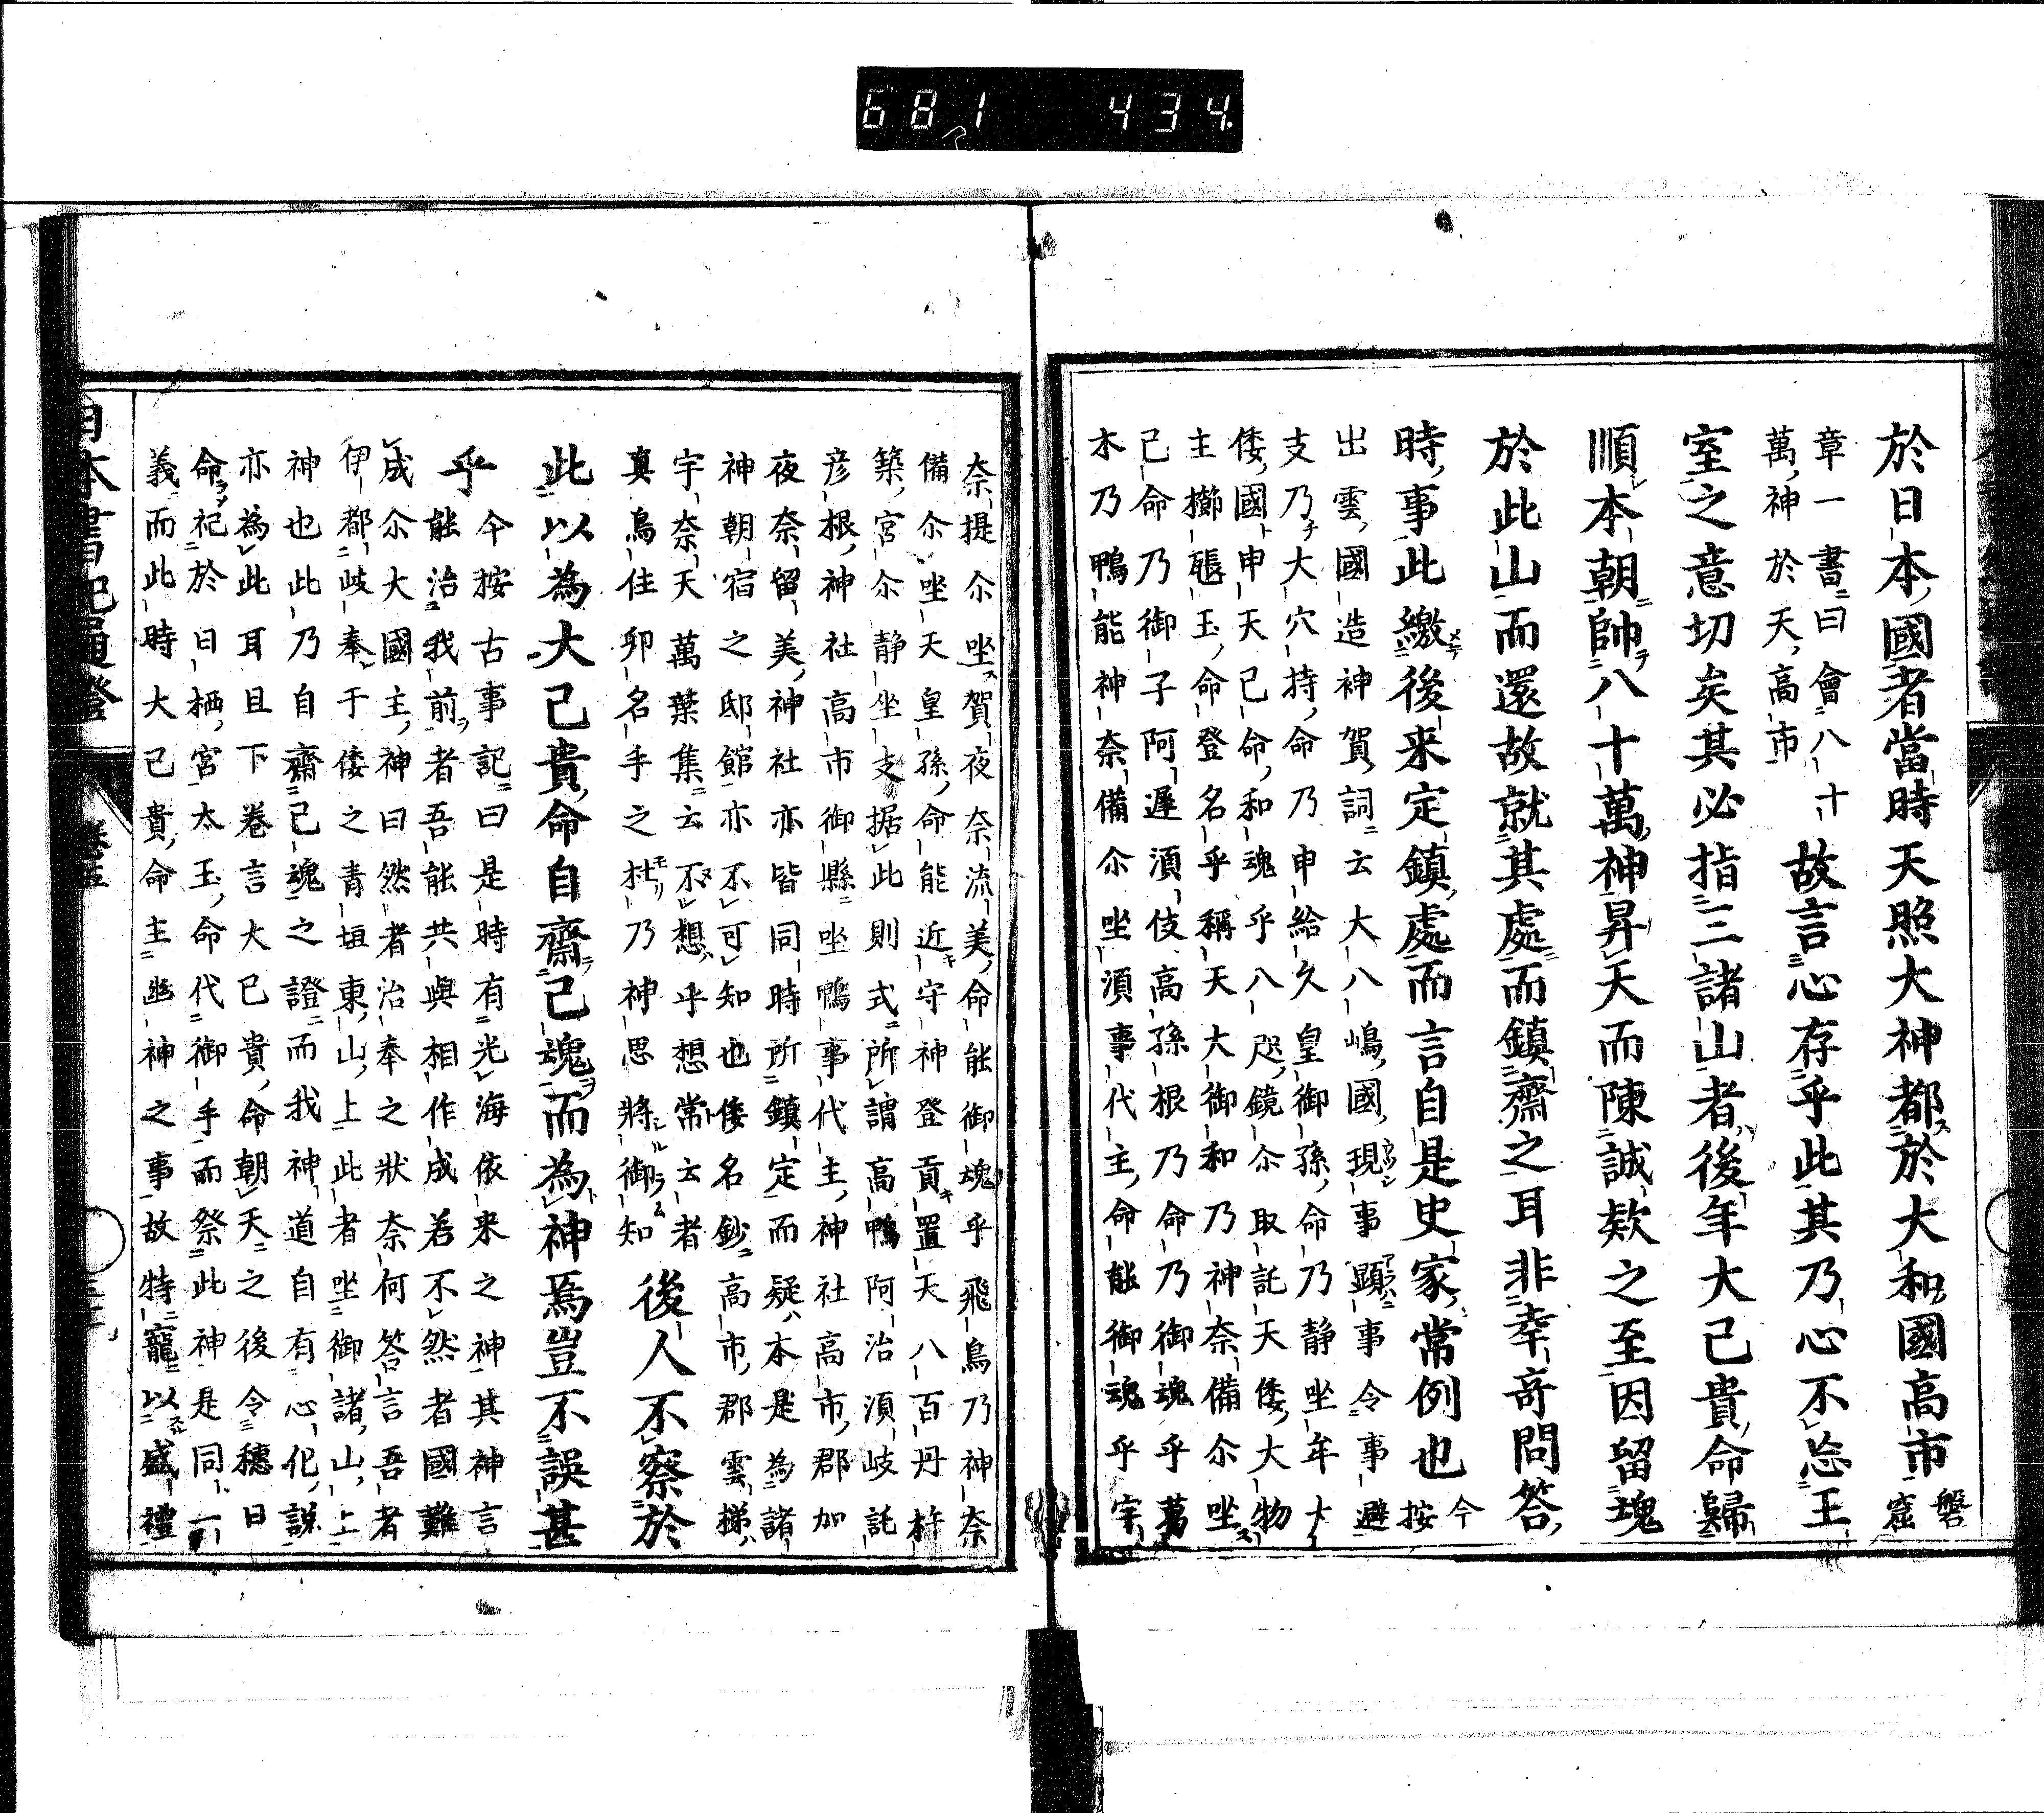 681 434
於日本國者當時天照大神都於大和國高市磐
窟
章一書曰會八十
萬神於天高市
故言心存乎此其乃心不忘王
室之意切矣其必指三諸山者後年大己貴命歸
順本朝帥八十萬神昇天而陳誠欵之至因留魂
於此山而還故就其處而鎮齋之耳非幸奇問答
時事此繳後来定鎮處而言自是史家常例也今
按
出雲國造神賀詞云大八嶋國現事顯事令事避
支乃大穴持命乃申給久皇御孫命乃静坐牟大
倭國申天己命和魂乎八咫鏡尒取託天倭大物
主櫛𤭖玉命登名乎稱天大御和乃神奈備尒坐
己命乃御子阿遲須伎高孫根乃命乃御魂乎葛
木乃鴨能神奈備尒坐須事代主命能御魂乎宇
奈提尒坐賀夜奈流美命能御魂乎飛鳥乃神奈
備尒坐天皇孫命能近守神登貢置天八百丹杵
築宮尒静坐支据此則式所謂高鴨阿治須岐託
彦根神社高市御縣坐鴨事代主神社高市郡加
夜奈留美神社亦皆同時所鎮定而疑本是為諸
神朝宿之邸館亦不可知也倭名鈔高市郡雲梯
宇奈天萬葉集云不想乎想常云者
真鳥住卯名手之杜乃神思將御知
後人不察於
此以為大己貴命自齋己魂而為神焉豈不誤甚
乎今按古事記曰是時有光海依来之神其神言
能治我前者吾能共與相作成若不然者國難
成尒大國主神曰然者治奉之狀奈何答言吾者
伊都岐奉于倭之青垣東山上此者坐御諸山上
神也此乃自齋己魂之證而我神道自有心化説
亦為此耳且下卷言大己貴命朝天之後令穗日
命祀於日栖宮太玉命代御手而祭此神是同一
義而此時大己貴命主幽神之事故特寵以盛禮
日本書紀通證 卷五